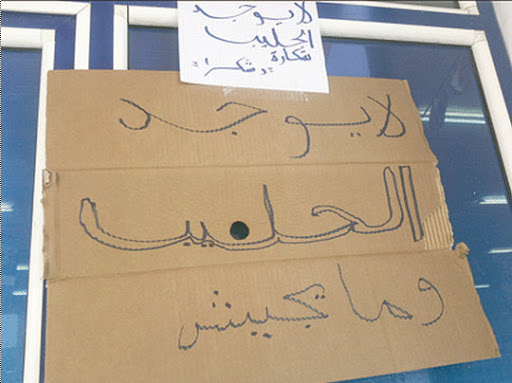 لا يوجد
الحليب
شكارة
"شكرا"
لا يوجد
الحليب
وما تجيبش